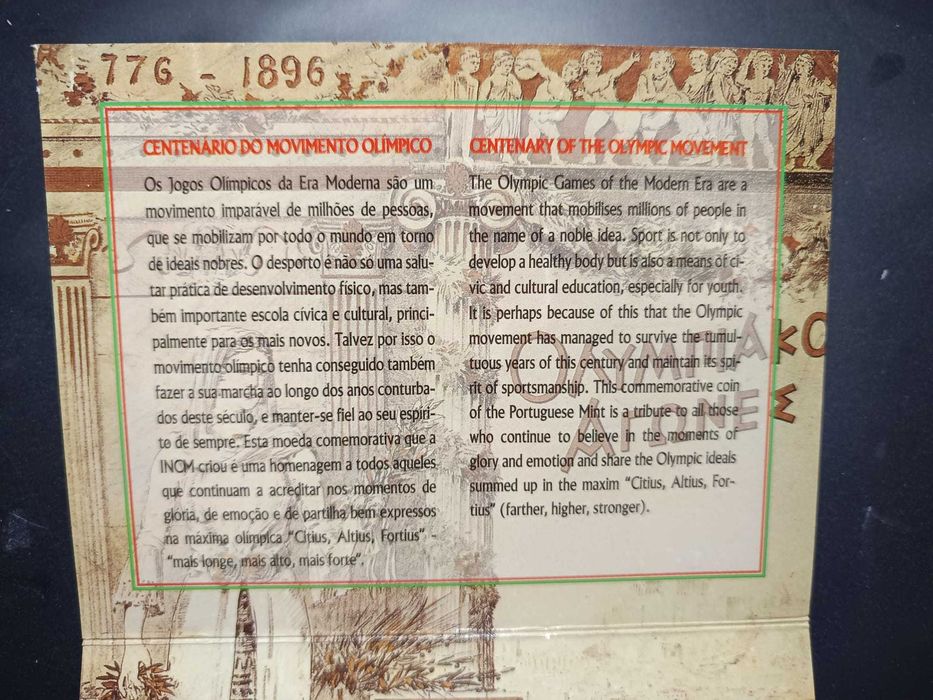 776 - 1896
CENTENÁRIO DO MOVIMENTO OLÍMPICO
Os Jogos Olímpicos da Era Moderna são um
movimento imparável de milhões de pessoas,
que se mobilizam por todo o mundo em torno
de ideais nobres. O desporto é não só uma salu-
tar prática de desenvolvimento físico, mas tam-
bém importante escola cívica e cultural, princi-
palmente para os mais novos. Talvez por isso o
movimento olímpico tenha conseguido também
fazer a sua marcha ao longo dos anos conturba-
dos deste século, e manter-se fiel ao seu espíri-
to de sempre. Esta moeda comemorativa que a
INCM criou é uma homenagem a todos aqueles
que continuam a acreditar nos momentos de
glória, de emoção e de partilha bem expressos
na máxima olímpica "Citius, Altius, Fortius" -
"mais longe, mais alto, mais forte".
CENTENARY OF THE OLYMPIC MOVEMENT
The Olympic Games of the Modern Era are a
movement that mobilises millions of people in
the name of a noble idea. Sport is not only to
develop a healthy body but is also a means of ci-
vic and cultural education, especially for youth.
It is perhaps because of this that the Olympic
movement has managed to survive the tumul-
tuous years of this century and maintain its spi-
rit of sportsmanship. This commemorative coin
of the Portuguese Mint is a tribute to all those
who continue to believe in the moments of
glory and emotion and share the Olympic ideals
summed up in the maxim "Citius, Altius, For-
tius" (farther, higher, stronger).
OLYMPIA